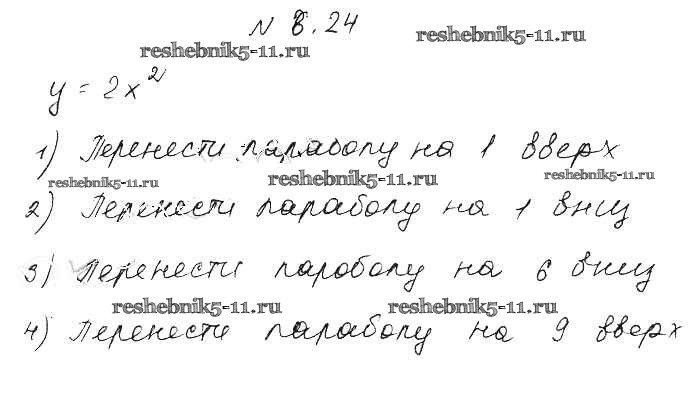 N 8.24
reshebnik5-11.ru
reshebnik5-11.ru
y = 2x²
1) Перенести параболу на 1 вверх
reshebnik5-11.ru
reshebnik5-11.ru
reshebnik5-11.ru
2) Перенести параболу на 1 вниз
3) Перенести параболу на 6 вниз
reshebnik5-11.ru
reshebnik5-11.ru
4) Перенести параболу на 9 вверх